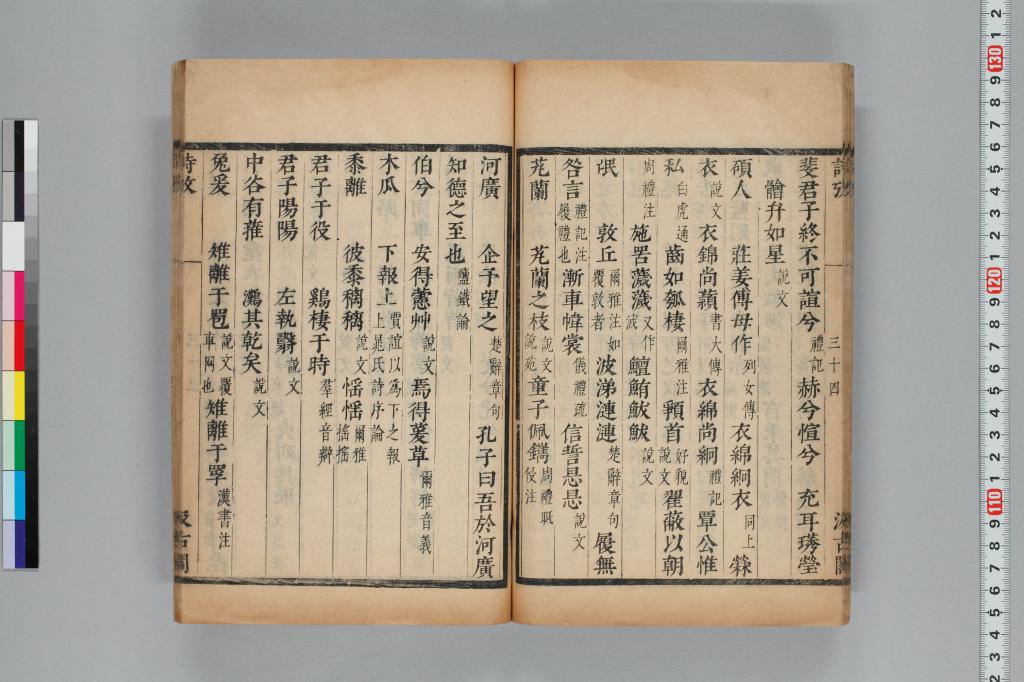 斐君子終不可諠兮 禮記 赫兮愃兮 充耳琇瑩
䯤弁如星 說文
碩人 莊姜傅母作 列女傳 衣綿絅衣 同上
衣 說文 衣錦尚蘔 書大傳 衣綿尚絅 禮記 覃公惟
私 白虎通 齒如瓠棲 爾雅注 頛首 好貌 說文 翟蔽以朝
周禮注 施罟濊濊 又作 鱣鮪鮁鮁 說文
氓 敦丘 爾雅注如覆敦者 波涕漣漣 楚辭章句 履無
咎言 禮記注履禮也 漸車幃裳 儀禮疏 信誓悬悬 說文
芄蘭 芄蘭之枝 說文 說苑 童子佩鐫 周禮 注
河廣 企予望之 楚辭章句 孔子曰吾於河廣
知德之至也 鹽鐵論
伯兮 安得藼艸 說文 焉得萲草 爾雅音義
木瓜 下報上 賈誼以為下之報上晁氏詩序論
黍離 彼黍稨稨 說文 愮愮 爾雅 搖搖
君子于役 鷄棲于時 羣經音辯
君子陽陽 左執翳 說文
中谷有蓷 灘其乾矣 說文
兔爰 雉離于䍖 說文覆車网也 雉離于罦 漢書注
三十四